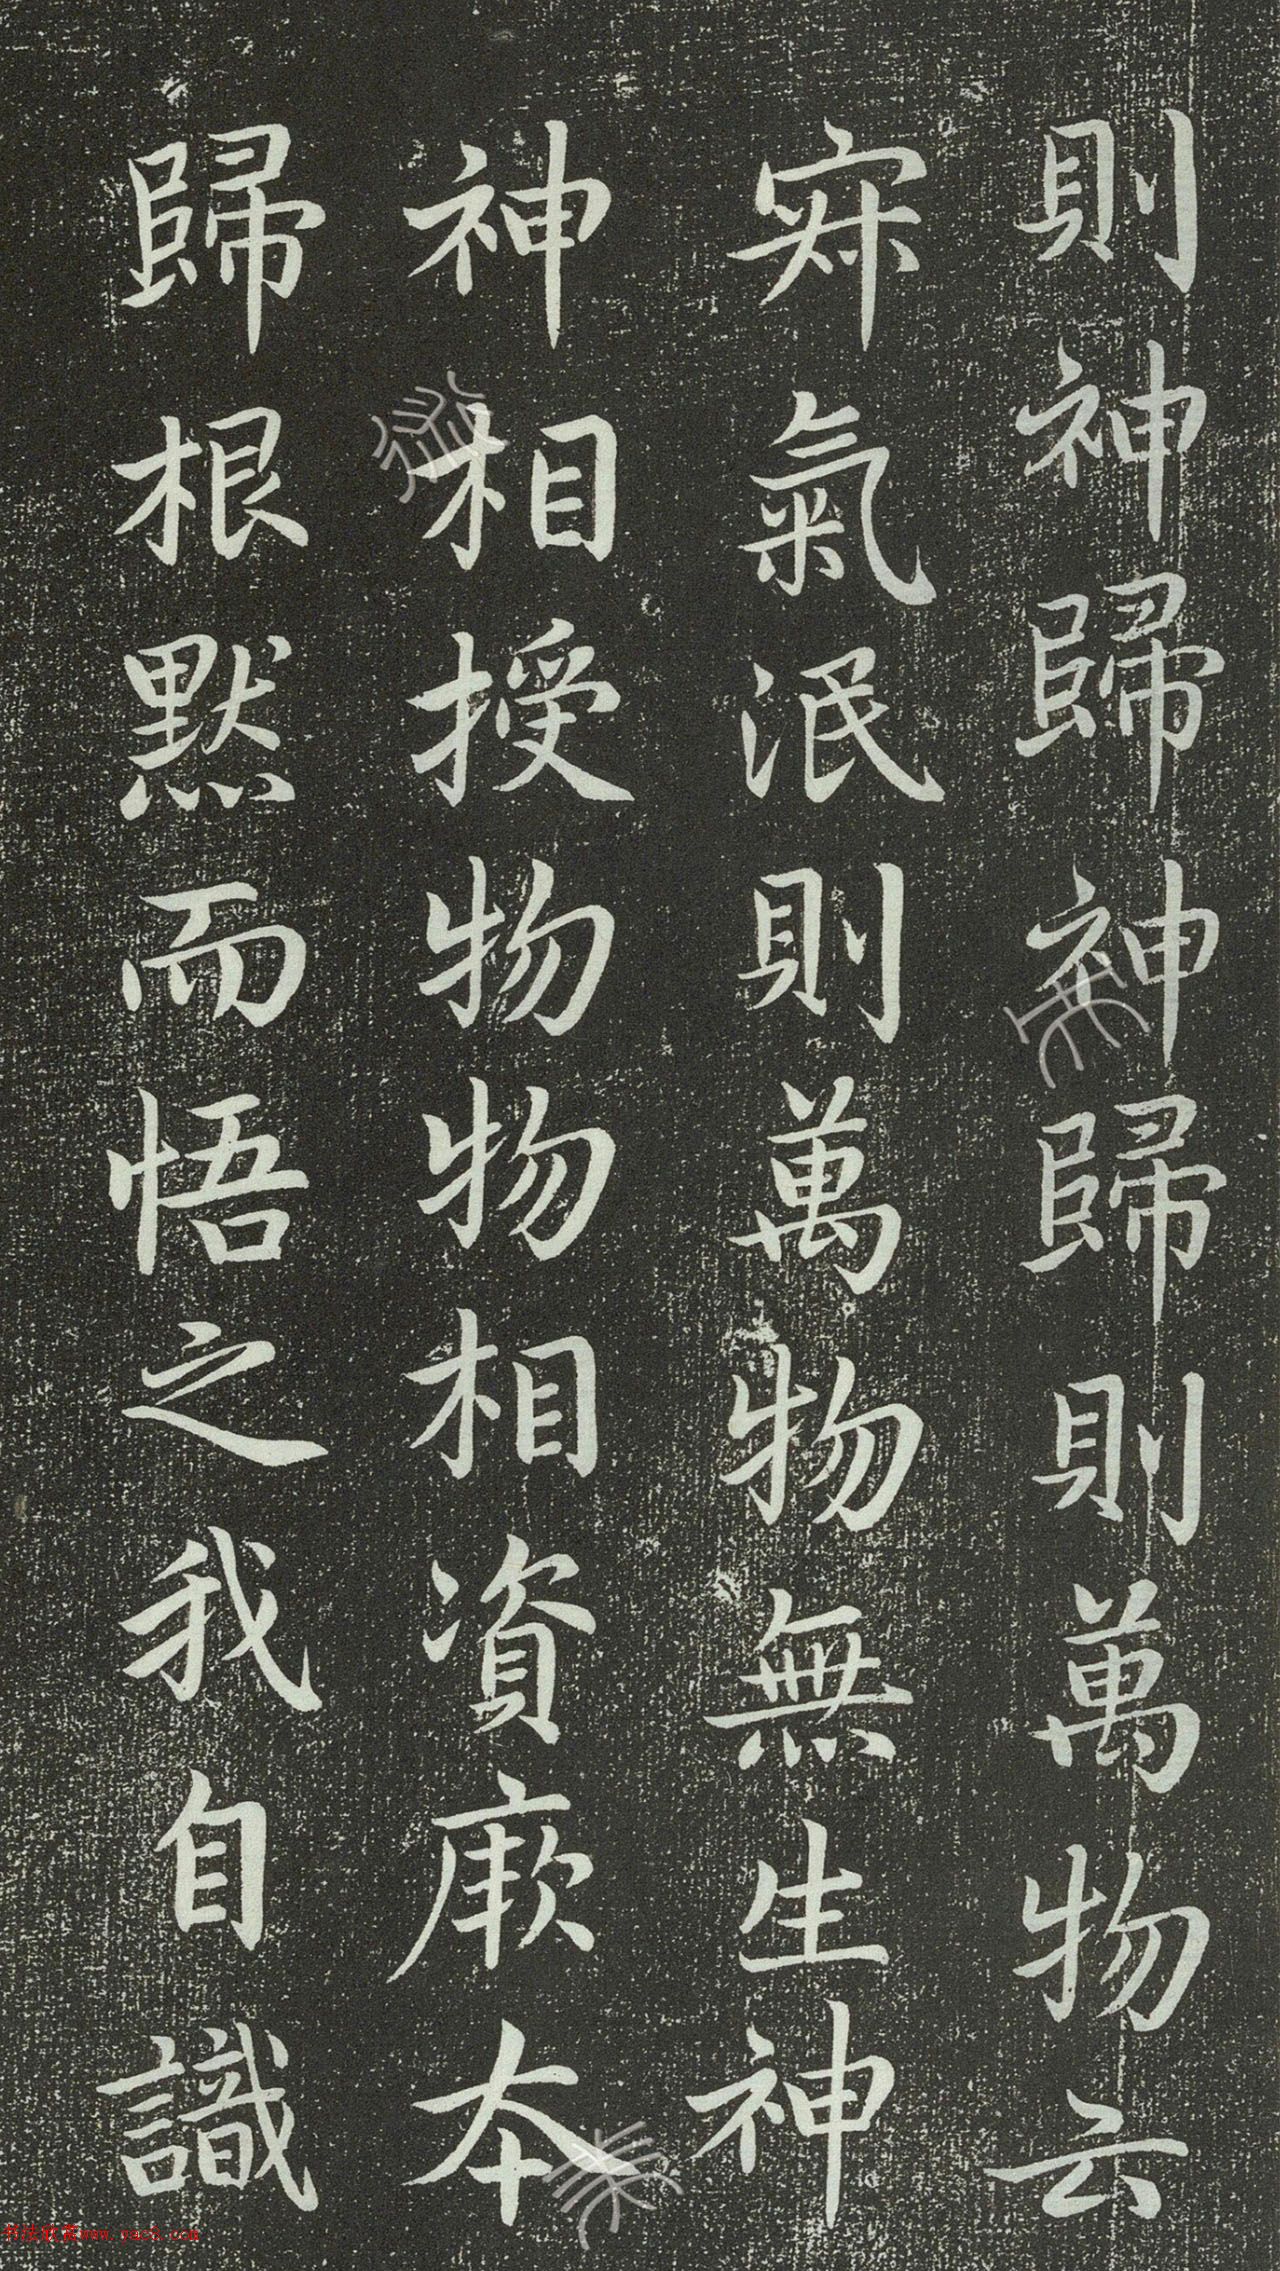 則神歸神歸則萬物云
寂氣泯則萬物無生神
神相授物物相資厥本
歸根默而悟之我自識
书法教育www.yac8.com